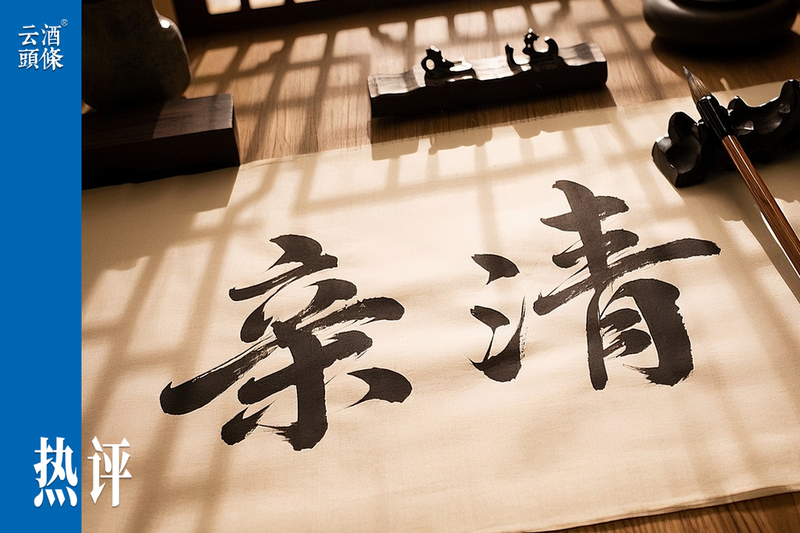 云酒®
頭條
亲清
热评